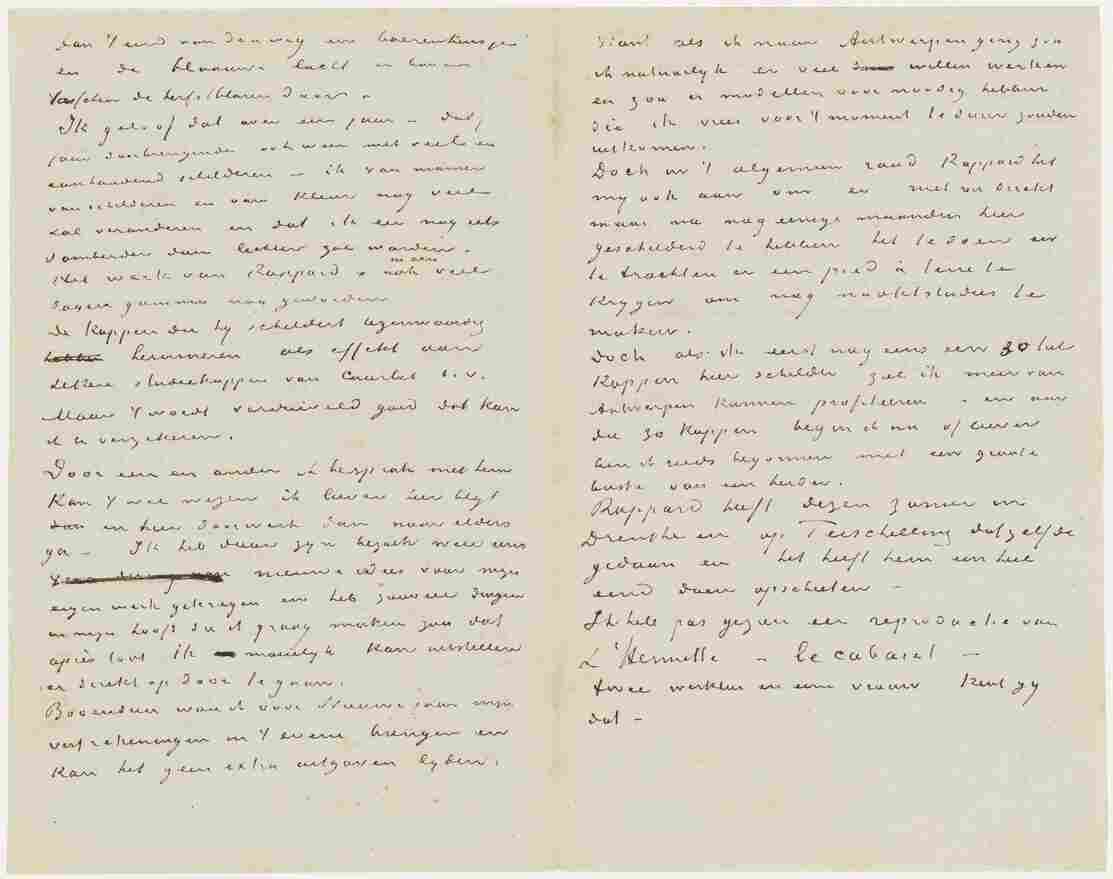 dan 't eind van den weg een boerenhuisje
en de blaauwe lucht er boven
tusschen de herfstblaren door.
Ik geloof dat over een jaar – dat
jaar doorbrengende ook weer met veel en
aanhoudend schilderen – ik van manier
van schilderen en van kleur nog veel
zal veranderen en dat ik eer nog iets
somberder dan lichter zal worden.
Het werk van Rappard is m. i. ook veel
dage gammas nog geworden
de Koppen die hij schildert tegenwoordig
hebben herinneren als effekt aan
zekere studiekoppen van Courbet b.v.
Maar 't wordt verduiveld goed dat kan
ik U verzekeren.
Door een en ander ik besprak met hem
Kan 't wel wezen ik liever hier blijf
dan en hier doorwerk dan naar elders
ga – Ik heb door zijn bezoek weer eens
nieuwe idees voor mijn
eigen werk gekregen en heb zooveel dingen
in mijn hoofd die ik graag maken zou dat
après tout ik moeielijk kan uitstellen
er direkt op door te gaan.
Bovendien wou ik voor Nieuwejaar mijn
verfrekeningen in 't evene brengen en
Kan het geen extra uitgaven lijden.
Want als ik naar Antwerpen ging zou
ik natuurlijk er veel willen werken
en zou er modellen voor noodig hebben
die ik vrees voor 't moment te duur zouden
uitkomen.
Doch in 't algemeen raad Rappard het
mij ook aan om er niet nu direkt
maar na nog eenige maanden hier
geschilderd te hebben het te doen en
te trachten er een pied à terre te
Krijgen om nog naaktstudies te
maken.
Doch als ik eerst nog eens een 30 tal
Koppen hier schilder zal ik meer van
Antwerpen kunnen profiteeren – en aan
die 30 Koppen begin ik nu of liever
ben ik reeds begonnen met een groote
buste van een herder.
Rappard heeft dezen zomer in
Drenthe en op Terschelling datzelfde
gedaan en het heeft hem een heel
eind doen opschieten –
Ik heb pas gezien een reproductie van
L'Hermitte – le cabaret –
twee werklui en een vrouw Kent gij
dat –